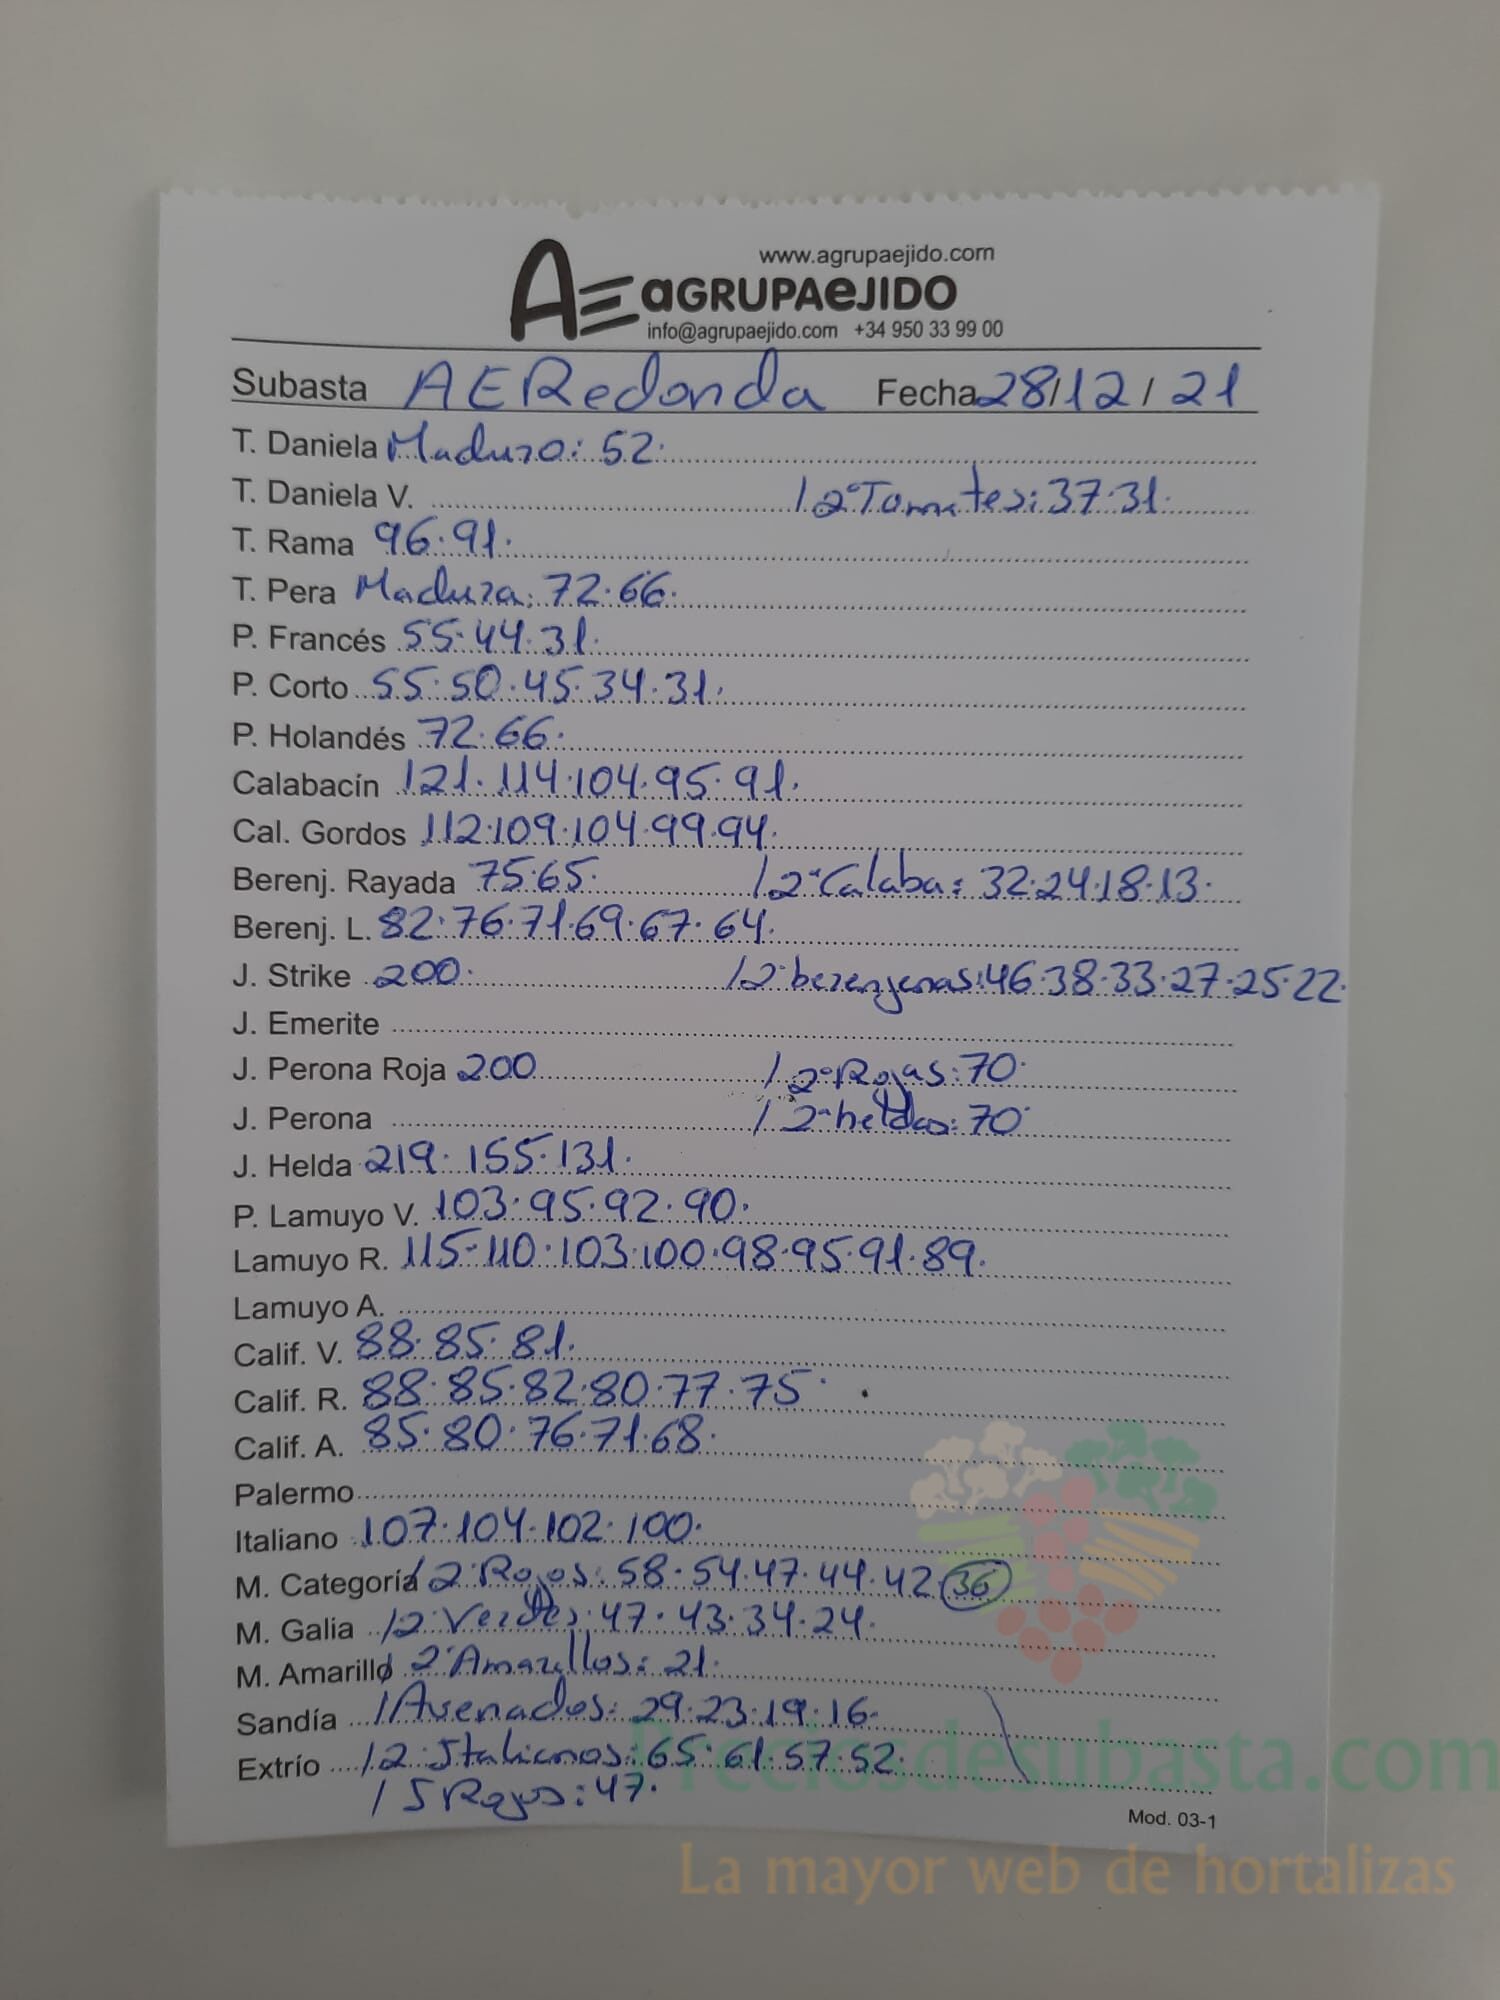 www.agrupaejido.com
AE aGRUPAeJIDO
info@agrupaejido.com +34 950 33 99 00
Subasta AERedonda Fecha 28/12/21
T. Daniela Maduro: 52.
T. Daniela V. /2ºTomates: 37.31.
T. Rama 96.91.
T. Pera Madura: 72.66.
P. Francés 55.44.31.
P. Corto 55.50.45.34.31.
P. Holandés 72.66.
Calabacín 121.114.104.95.91.
Cal. Gordos 112.109.104.99.94.
Berenj. Rayada 75.65. /2ªCalaba: 32.24.18.13.
Berenj. L. 82.76.71.69.67.64.
J. Strike 200. /2ªberenjenas: 46.38.33.27.25.22.
J. Emerite
J. Perona Roja 200 /2ªRojas: 70.
J. Perona /2ªheldas: 70.
J. Helda 219.155.131.
P. Lamuyo V. 103.95.92.90.
Lamuyo R. 115.110.103.100.98.95.91.89.
Lamuyo A.
Calif. V. 88.85.81.
Calif. R. 88.85.82.80.77.75.
Calif. A. 85.80.76.71.68.
Palermo
Italiano 107.104.102.100.
M. Categoría /2ºRojos: 58.54.47.44.42 36
M. Galia /2ºVerdes: 47.43.34.24.
M. Amarillo 2ºAmarillos: 21.
Sandía /Asenados: 29.23.19.16.
Extrío /2ºItalianos: 65.61.57.52.
/5 Rojos: 47.
Mod. 03-1
Preciosdesubasta.com
La mayor web de hortalizas